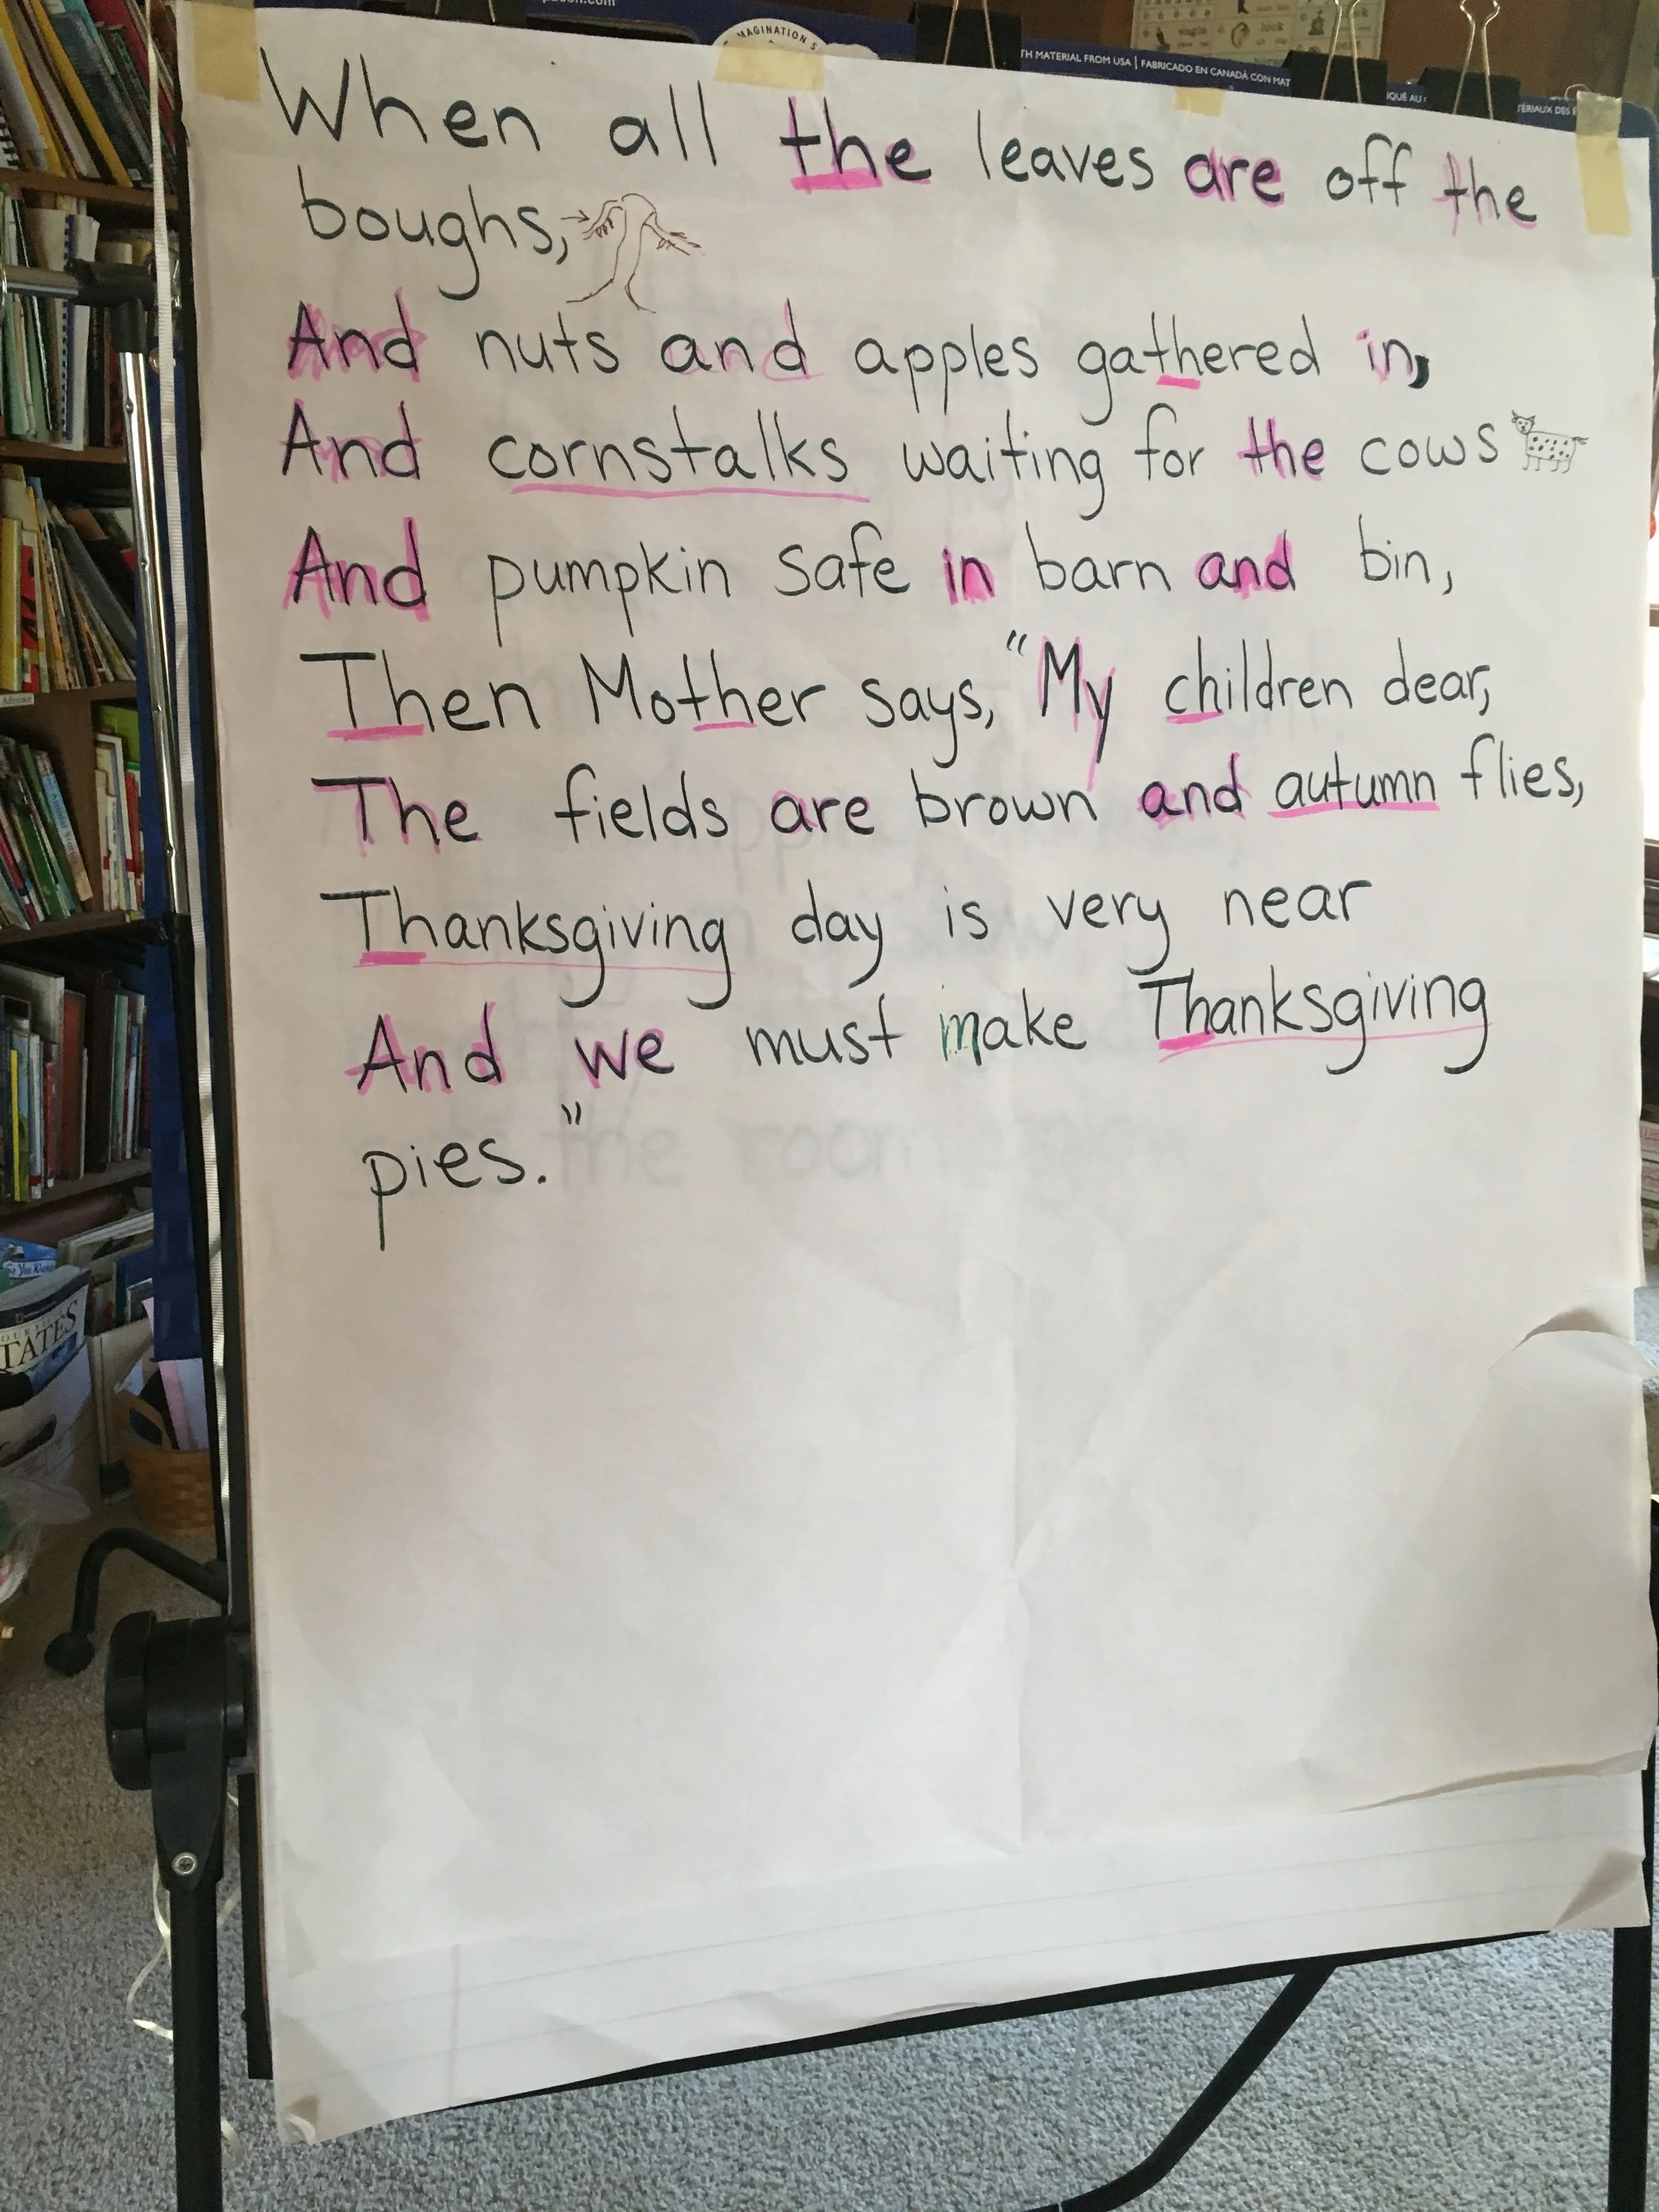 MAGINATION S
TH MATERIAL FROM USA | FABRICADO EN CANADÁ CON MAT
When all the leaves are off the
boughs,
And nuts and apples gathered in,
And cornstalks waiting for the cows
And pumpkin safe in barn and bin,
Then Mother says, "My children dear,
The fields are brown and autumn flies,
Thanksgiving day is very near
And we must make Thanksgiving
pies."
TATES